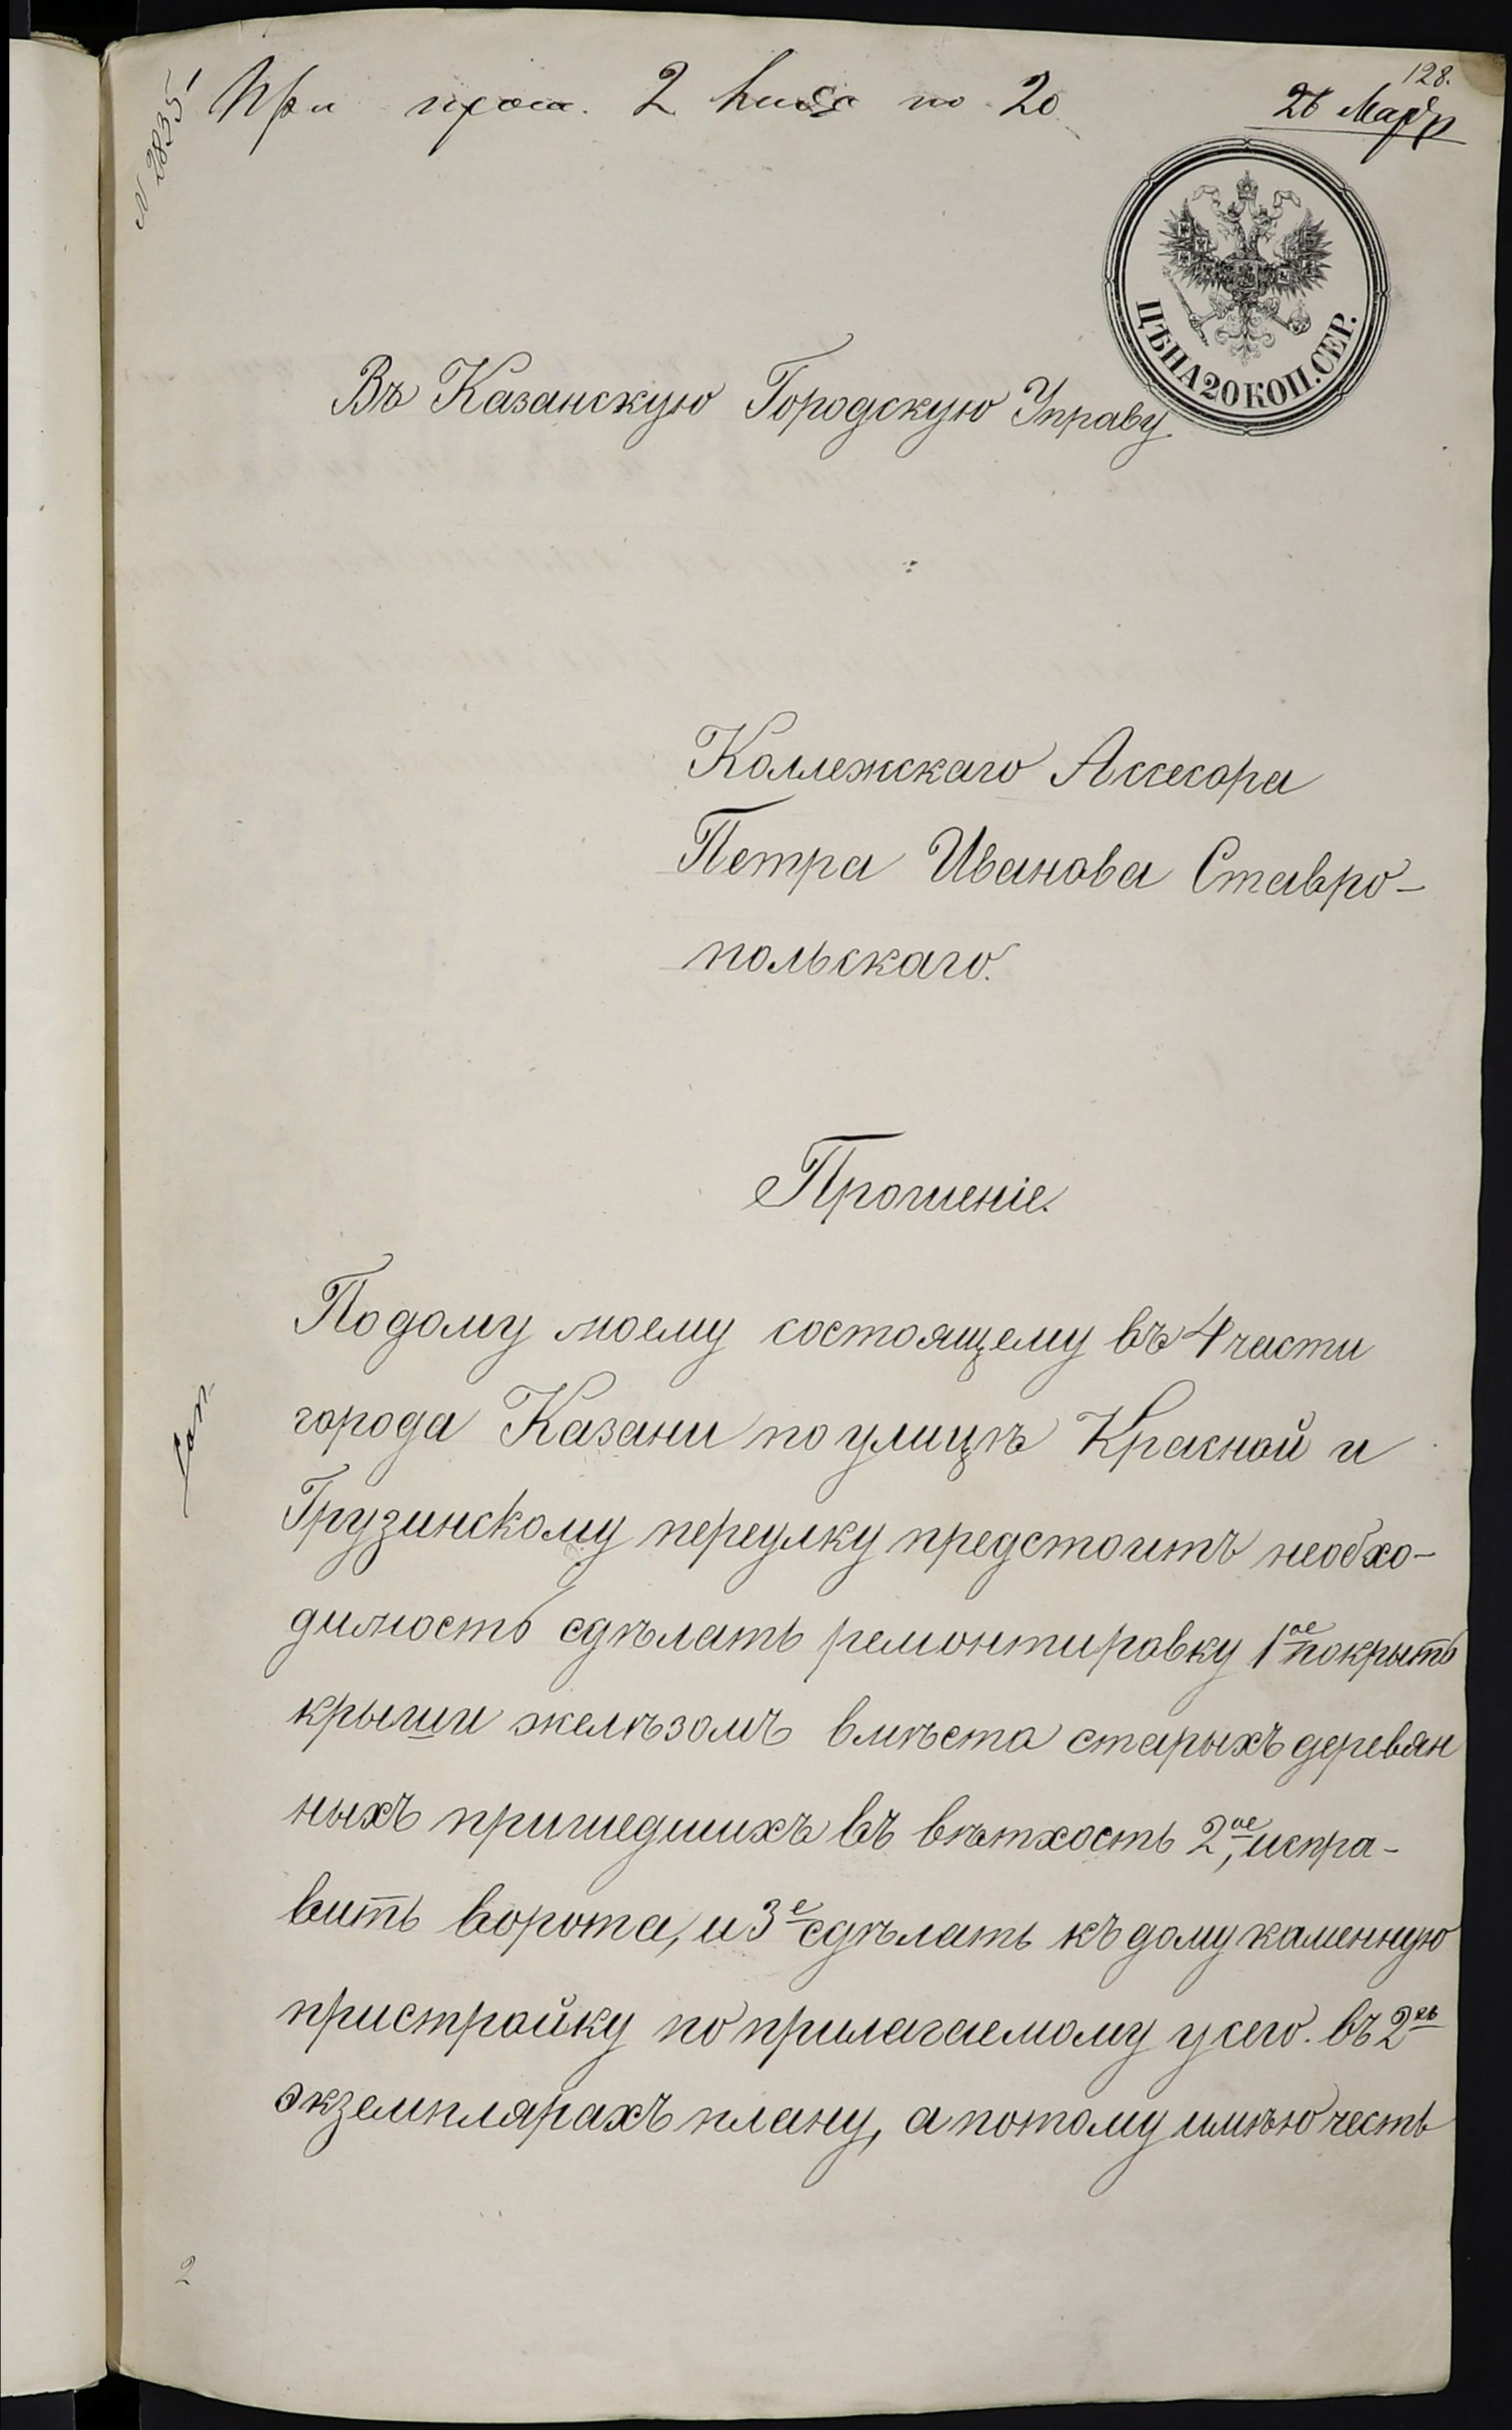 128.
26 Мар
N 2835
При прош. 2 по 20
ЦѢНА 20 КОП. СЕР.
Въ Казанскую Городскую Управу
Коллежскаго Ассесора
Петра Иванова Ставро-
польскаго.
Прошеніе.
По дому моему состоящему въ 4 части
города Казани по улицѣ Красной и
Грузинскому переулку предстоитъ необхо-
димость сдѣлать ремонтировку 1ое покрыть
крыши желѣзомъ вмѣсто старыхъ деревян
ныхъ пришедшихъ въ вѣтхость 2ое, испра-
вить ворота, и 3е сдѣлать къ дому каменную
пристройку по прилагаемому у сего въ 2хъ
экземплярахъ плану, а потому имѣю честь
2